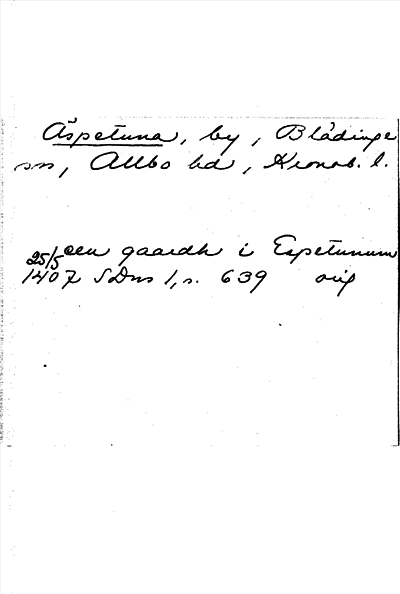 Äspetuna, by, Blädinge
sn, Allbo hd, Kronob. l.
25/5 een gaardh i Espetunum
1407 SDns 1, s. 639 orig